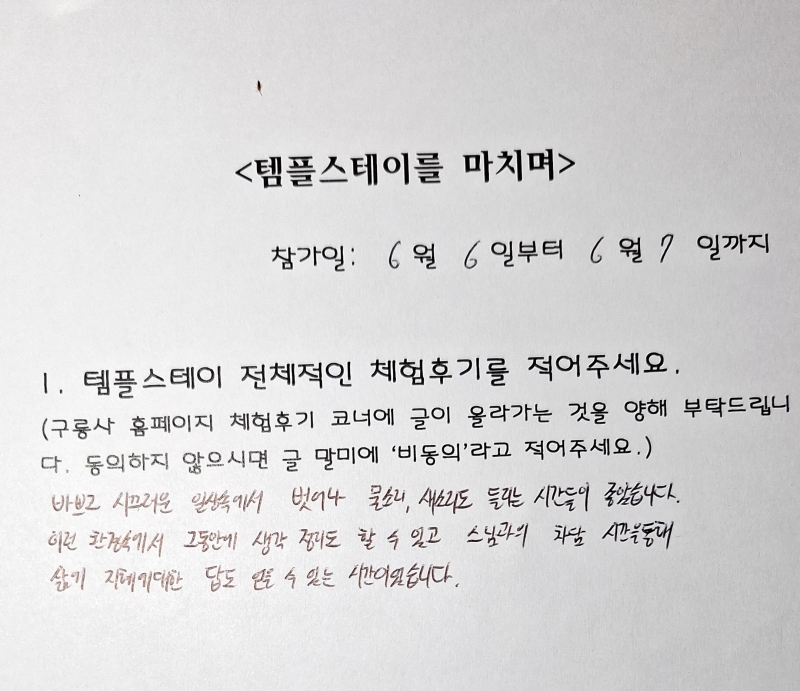 <템플스테이를 마치며>
참가일: 6 월 6 일부터 6 월 7 일까지
1. 템플스테이 전체적인 체험후기를 적어주세요.
(구룡사 홈페이지 체험후기 코너에 글이 올라가는 것을 양해 부탁드립니
다. 동의하지 않으시면 글 말미에 '비동의'라고 적어주세요.)
바쁘고 시끄러운 일상속에서 벗어나 물소리, 새소리도 들리는 시간들이 좋았습니다.
이런 환경속에서 그동안에 생각 정리도 할 수 있고 스님과의 차담 시간을통해
삶기 지혜에대한 답도 얻을 수 있는 시간이었습니다.